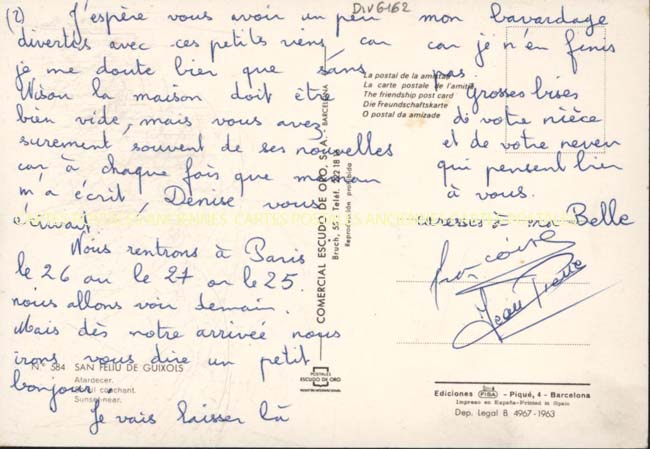 DIV6162
(2) J'espère vous avoir un peu
divertes avec ces petits riens, car
je me doute bien que sans
Nison la maison doit être
bien vide, mais vous avez
surement souvent de ses nouvelles
car à chaque fois que maman
m'a écrit, Denise vous
écrivait.
Nous rentrons à Paris
le 26 ou le 27 or le 25.
nous allons voir demain.
Mais dès notre arrivée nous
irons vous dire un petit
bonjour.
Je vais laisser là
mon bavardage
car je n'en finis
pas
grosses bises
de votre nièce
et de votre neveu
qui pensent bien
à vous.
à ma Belle
Françoise
Jean Pierre
La postal de la amistad
La carte postale de l'amitié
The friendship post card
Die Freundschaftskarte
O postal da amizade
COMERCIAL ESCUDO DE ORO, S.A. - BARCELONA
Reproducción prohibida
N.º 584 SAN FELIU DE GUIXOLS
Atardecer.
Soleil couchant.
Sunset near.
POSTALES
ESCUDO DE ORO
Ediciones FISA - Piqué, 4 - Barcelona
Impreso en España-Printed in Spain
Dep. Legal B 4967-1963
CARTES POSTALES ANCIENNES CARTES POSTALES ANCIENNES